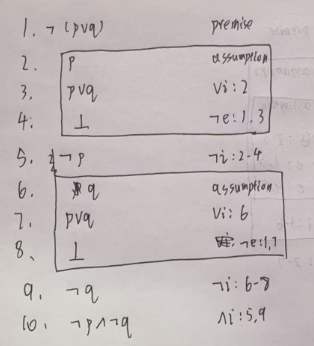 1. ¬(p∨q) premise
2. p assumption
3. p∨q ∨i:2
4: ⊥ ¬e:1,3
5. ¬p ¬i:2-4
6. q assumption
7. p∨q ∨i:6
8、 ⊥ ¬e:1,7
9. ¬q ¬i:6-8
10. ¬p∧¬q ∧i:5,9